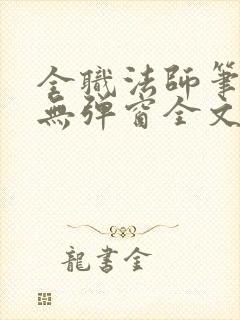 全職法師筆
無彈窗全文
龍書金